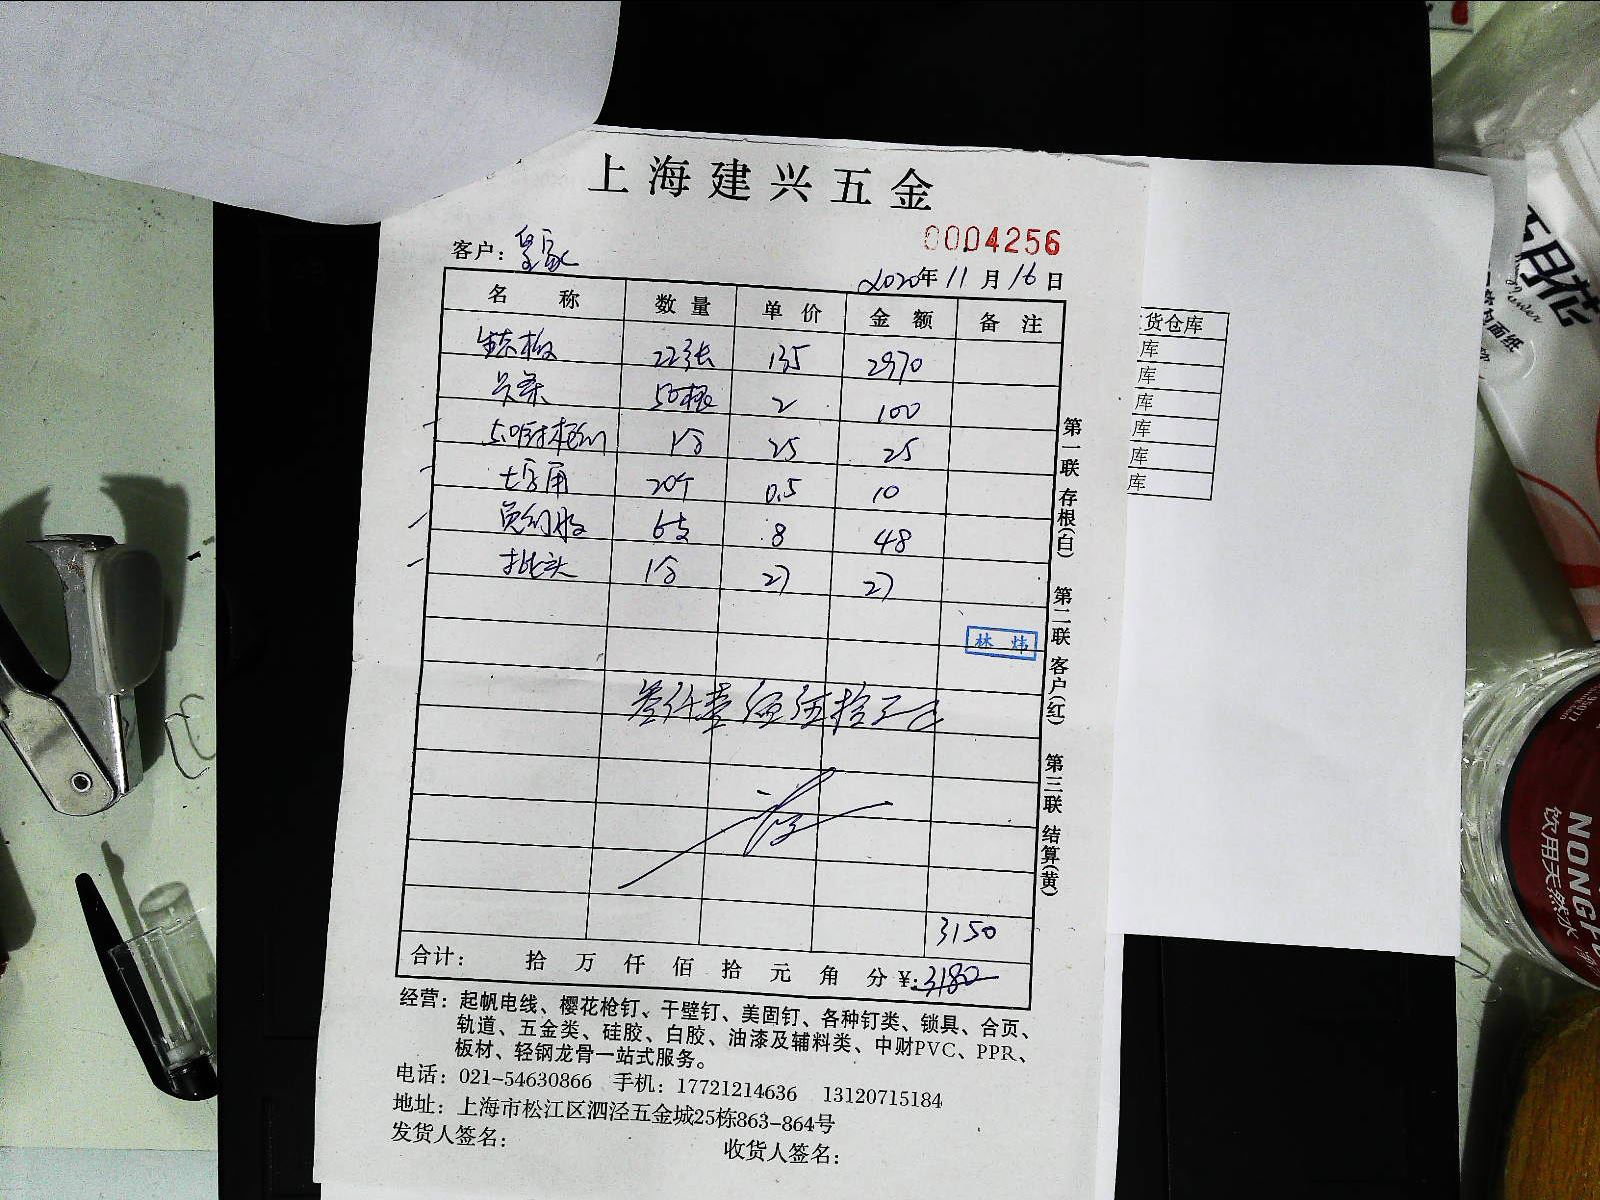 上海建兴五金
0004256
客户：皇家
2020年11月16日
名 称 数 量 单 价 金 额 备 注
生态板 22张 135 2970
50根 2 100
1合 25 25
七字角 20个 0.5 10
6支 8 48
批头 1合 27 27
林 炜
叁仟壹佰伍拾元正
3150
合计： 拾 万 仟 佰 拾 元 角 分 ¥:3180
第一联 存根(白) 第二联 客户(红) 第三联 结算(黄)
经营：起帆电线、樱花枪钉、干壁钉、美固钉、各种钉类、锁具、合页、
轨道、五金类、硅胶、白胶、油漆及辅料类、中财PVC、PPR、
板材、轻钢龙骨一站式服务。
电话：021-54630866 手机：17721214636 13120715184
地址：上海市松江区泗泾五金城25栋863-864号
发货人签名： 收货人签名：
货仓库
库
库
库
库
库
库
NONGF
饮用天然水